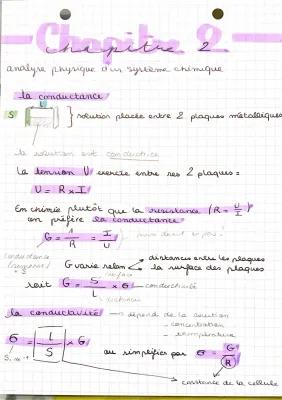 Chapitre 2
chapitre 2
analyse physique d'un système chimique
la conductance
S } solution placée entre 2 plaques métalliques
la solution est conductrice
la tension U exercée entre ses 2 plaques =
U = R x I
En chimie plutôt que la resistance (R = U/I)
on préfère la conductance
G = 1/R = I/U
conductance
G varie selon distances entre les plaques
la surface des plaques
surface
soit G = S/L x σ → conductivité
distance
la conductivité → dépend de la solution
- concentration
- température
σ = L/S x G ou simplifier par σ = G/R
S.m⁻¹
constance de la cellule